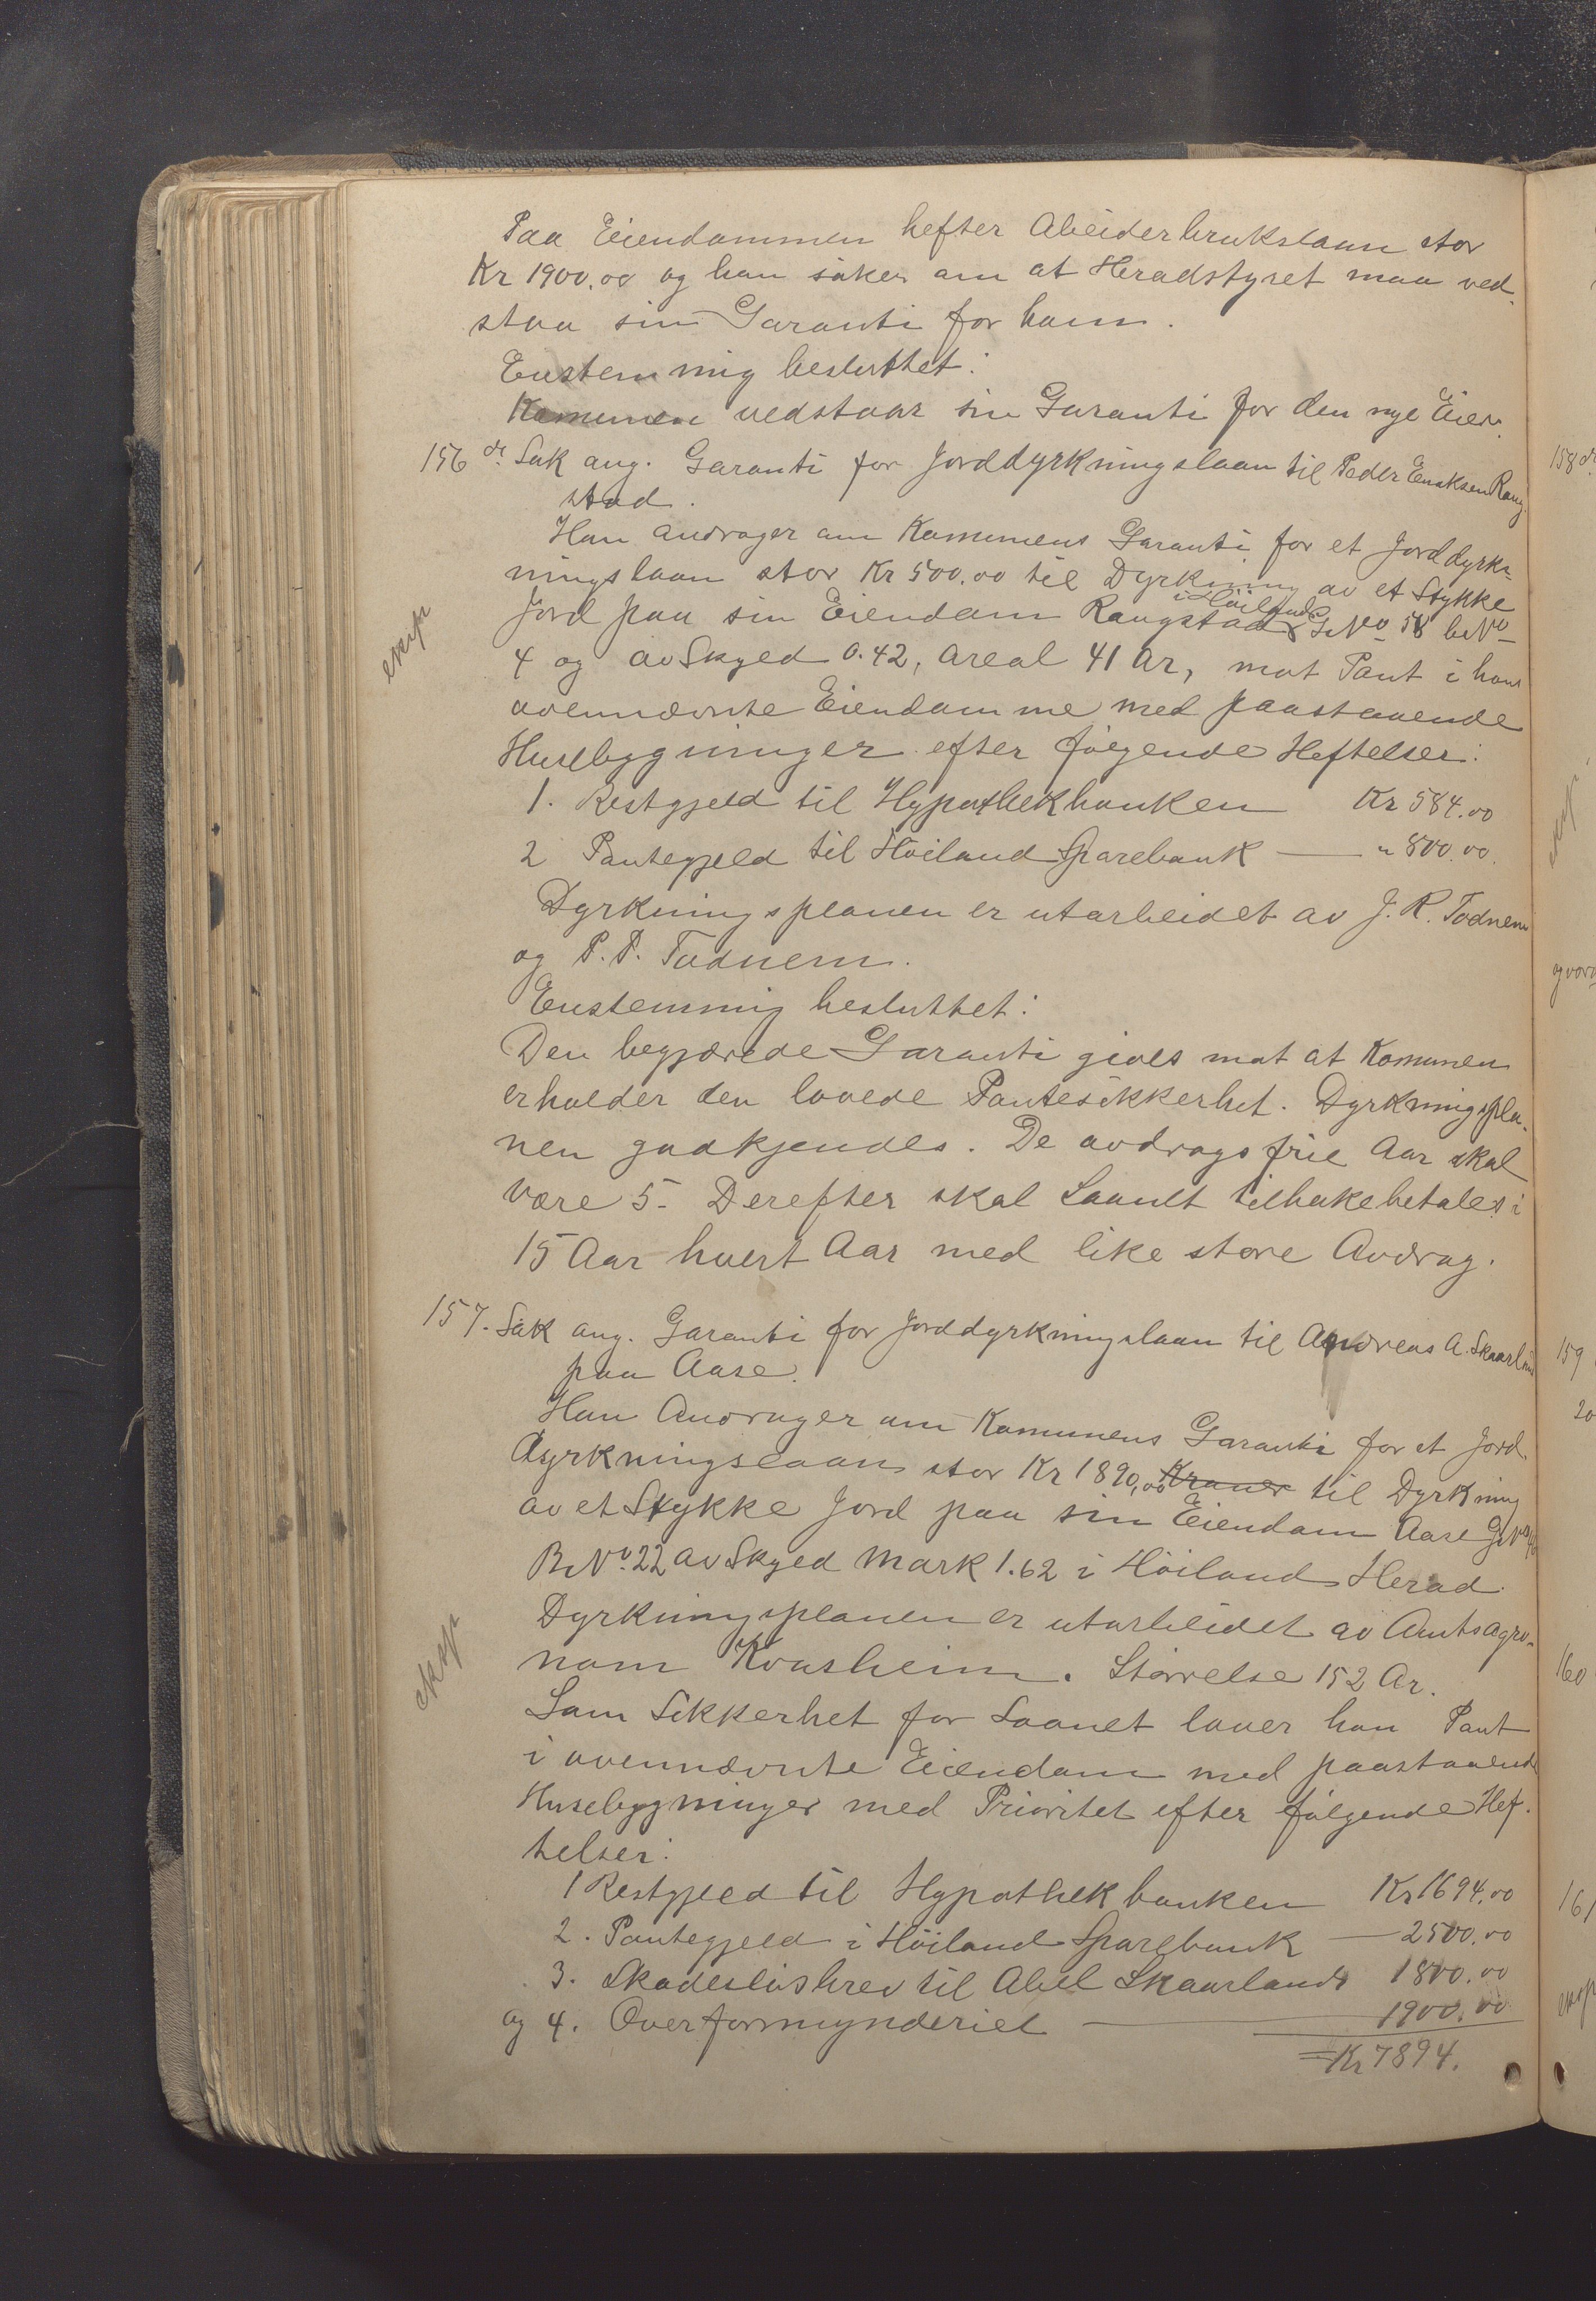 Paa Eiendommen hefter Abeiderbrukslaan stor
Kr 1900.00 og han søker om at Heradstyret maa ved-
staa sin Garanti for ham.
Enstemmig besluttet:
Kommunen vedstaar sin Garanti for den nye Eier.
156 de Sak ang. Garanti for Jorddyrkningslaan til Peder Enoksen Raug-
stad.
Han andrager om Komunens Garanti for et Jorddyrk-
ningslaan stor Kr 500.00 til Dyrkning av et Stykke
i Høiland
Jord paa sin Eiendom Raugstad G.No 58 bNo
4 og av Skyld 0.42, Areal 41 Ar, mot Pant i hans
ovennævnte Eiendomme med paastaaende
Husebygninger efter følgende Heftelser:
1. Restgjeld til Hypothekbanken Kr 584.00
2 Pantegjeld til Høiland Sparebank — " 800.00.
Dyrkningsplanen er utarbeidet av J. R. Todnem
og P. P. Todnem.
Enstemmig besluttet:
Den begjærede Garanti gives mot at Komunen
erholder den lovede Pantesikkerhet. Dyrkningspla-
nen godkjendes. De avdragsfrie Aar skal
være 5. Derefter skal Laanet tilbakebetales i
15 Aar hvert Aar med like store Avdrag.
157. Sak ang. Garanti for Jorddyrkningslaan til Andreas A. Skaarland
paa Aase.
Han Andrager om Komunens Garanti for et Jord-
dyrkningslaan stor Kr 1890,00 Kroner til Dyrkning
av et Stykke Jord paa sin Eiendom Aase GNo
BNo. 22 av Skyld Mark 1.62 i Høiland Herad.
Dyrkningsplanen er utarbeidet av Amtsagro-
nom Kvasheim. Størrelse 152 Ar.
Som Sikkerhet for Laanet lover han Pant
i ovennævnte Eiendom med paastaaende
Husebygninger med Prioritet efter følgende Hef-
telser:
1 Restgjeld til Hypothekbanken Kr 1694.00
2. Pantegjeld i Høiland Sparebank — 2500.00
3. Skadesløsbrev til Abel Skaarland 1800.00
og 4. Overformynderiet — 1900.00
= Kr 7894.
eksp
eksp
158 de
159
160
161